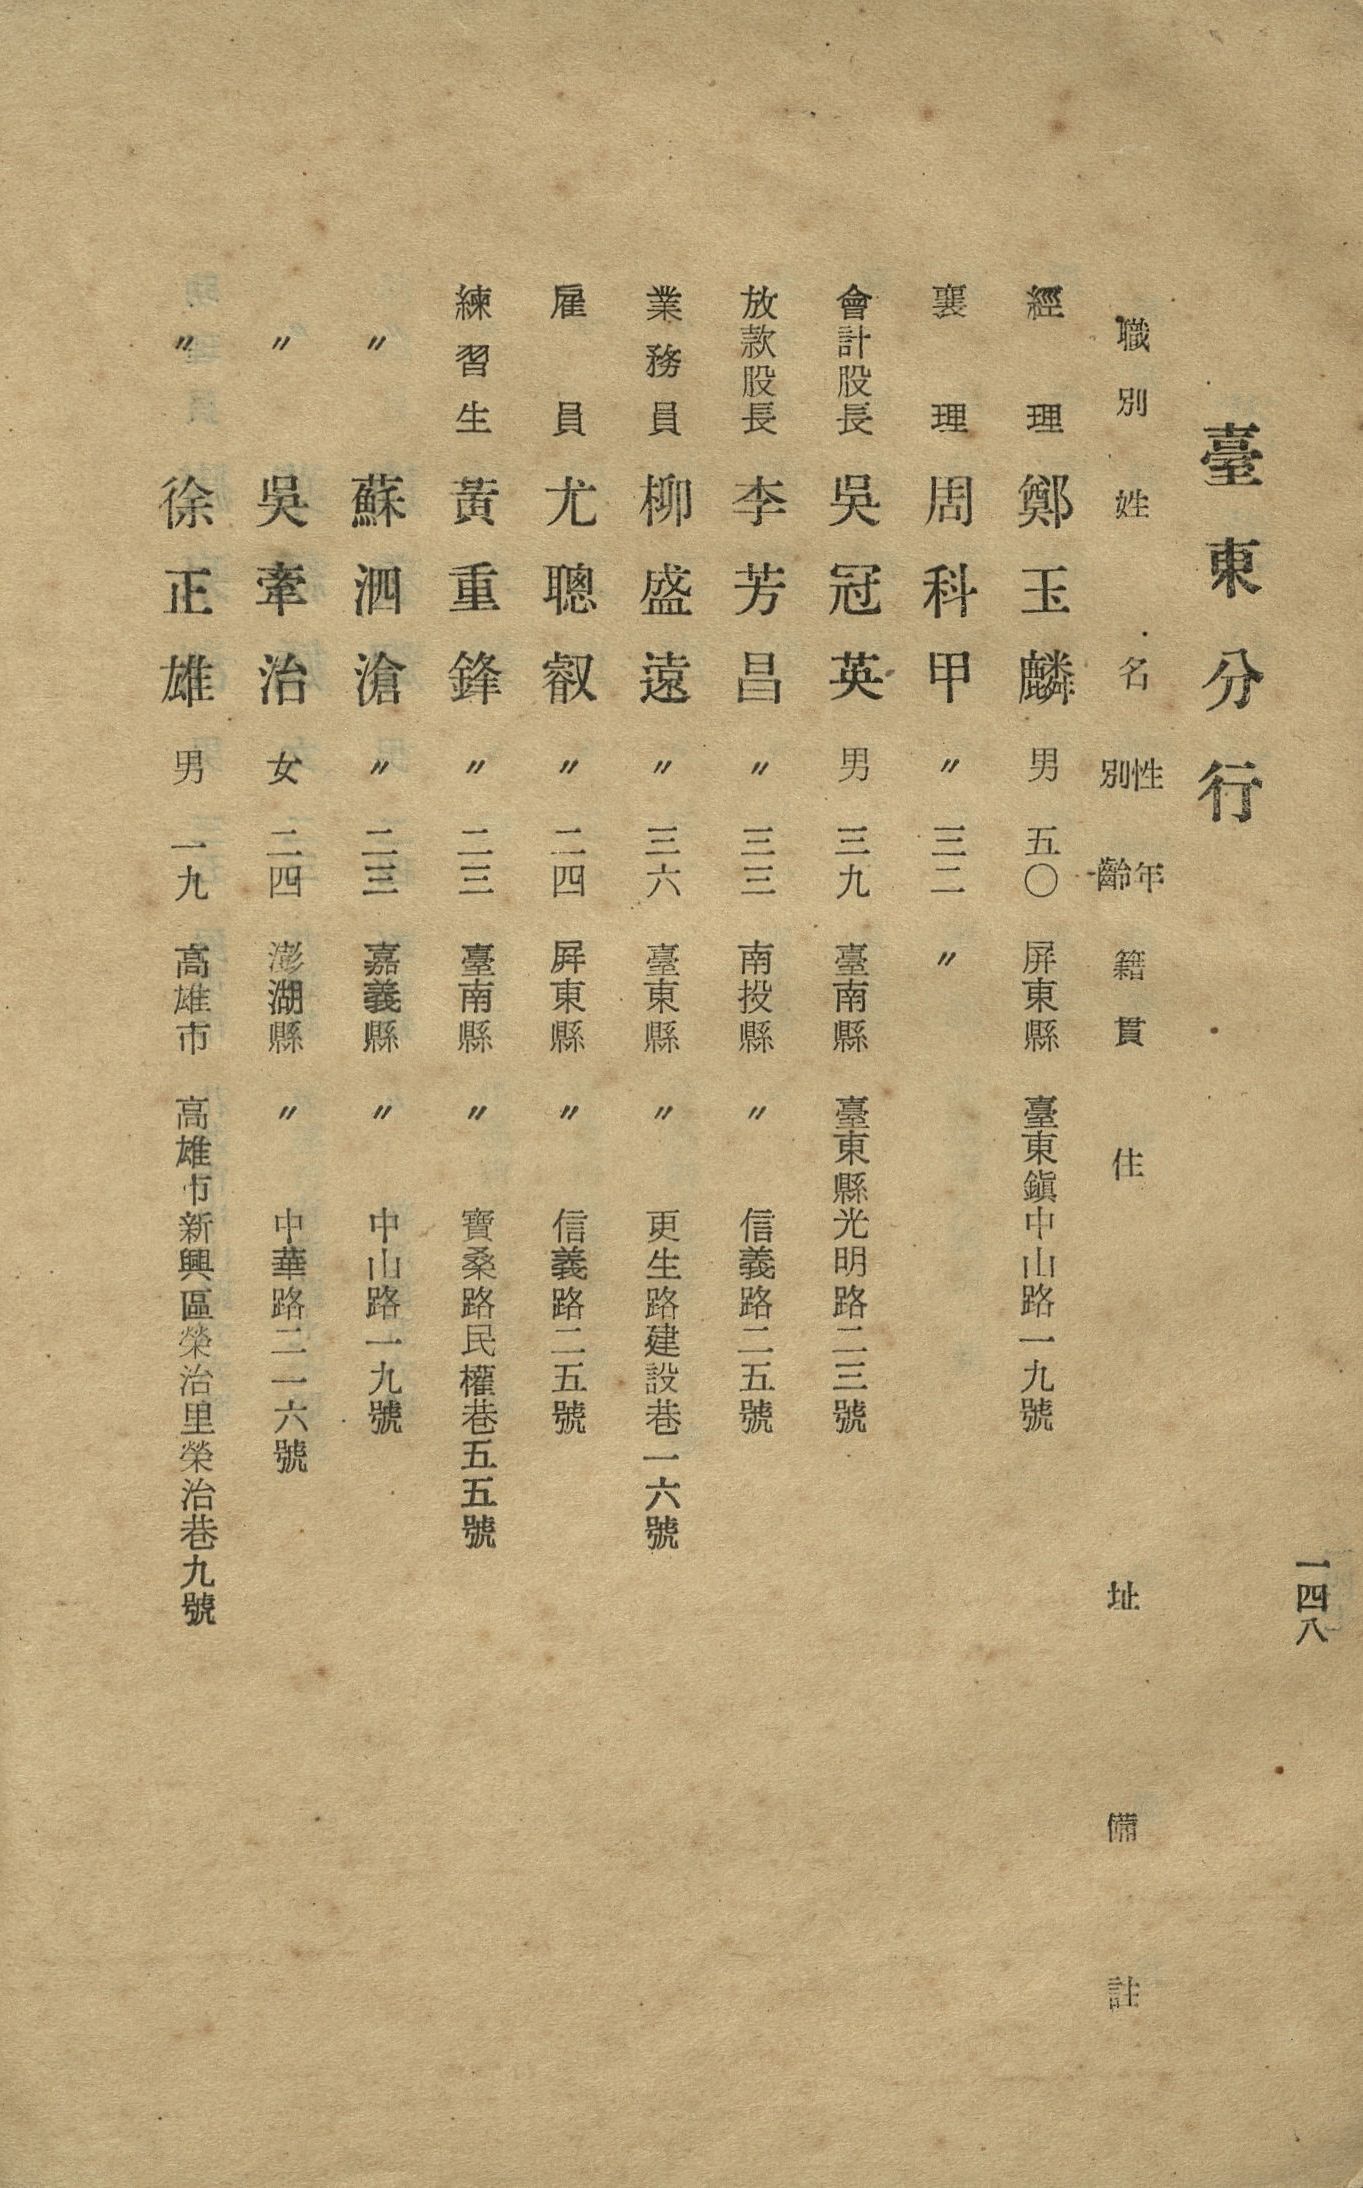 一四八
臺東分行
職別 姓名 性別 年齡 籍貫 住址 備註
經理 鄭玉麟 男 五〇 屏東縣 臺東鎭中山路一九號
襄理 周科甲 〃 三二 〃
會計股長 吳冠英 男 三九 臺南縣 臺東縣光明路二三號
放款股長 李芳昌 〃 三三 南投縣 〃 信義路二五號
業務員 柳盛遠 〃 三六 臺東縣 〃 更生路建設巷一六號
雇員 尤聰叡 〃 二四 屛東縣 〃 信義路二五號
練習生 黃重鋒 〃 二三 臺南縣 〃 寶桑路民權巷五五號
〃 蘇泗滄 〃 二三 嘉義縣 〃 中山路一九號
〃 吳牽治 女 二四 澎湖縣 〃 中華路二一六號
〃 徐正雄 男 一九 高雄市 高雄市新興區榮治里榮治巷九號